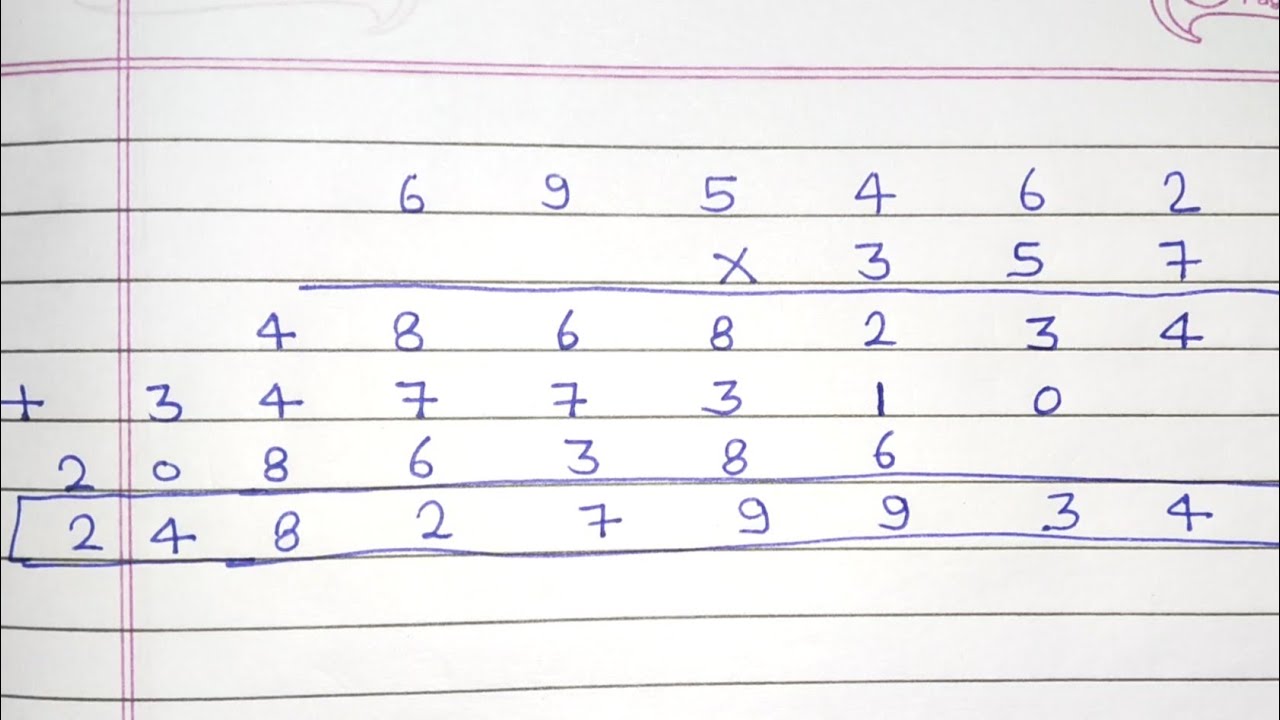 6 9 5 4 6 2
x 3 5 7
4 8 6 8 2 3 4
+ 3 4 7 7 3 1 0
2 0 8 6 3 8 6
2 4 8 2 7 9 9 3 4